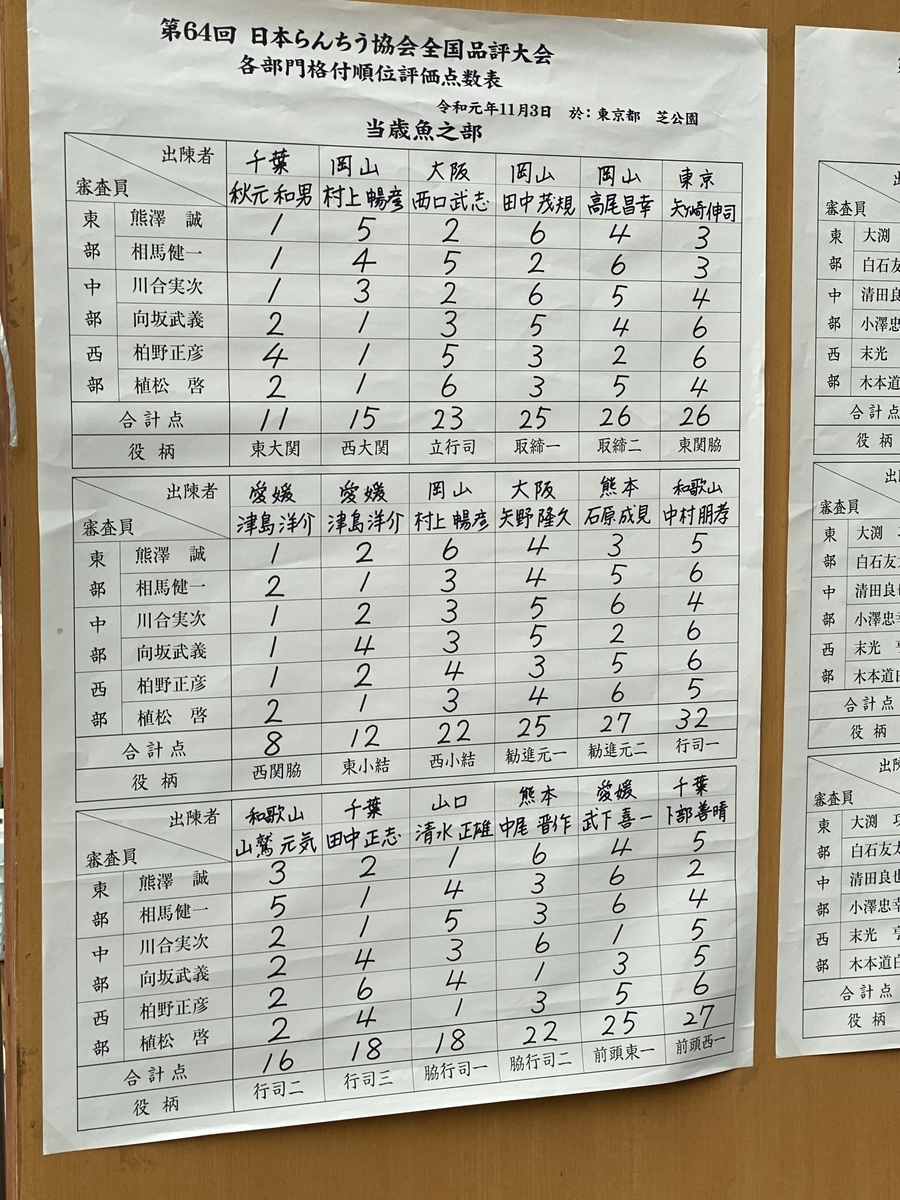 第64回 日本らんちう協会全国品評大会
各部門格付順位評価点数表
令和元年11月3日 於：東京都 芝公園
当歳魚之部
出陳者 千葉 岡山 大阪 岡山 岡山 東京
審査員 秋元 和男 村上 暢彦 西口 武志 田中 茂規 高尾昌幸 矢崎伸司
東 熊澤 誠 1 5 2 6 4 3
部 相馬健一 1 4 5 2 6 3
中 川合実次 1 3 2 6 5 4
部 向坂武義 2 1 3 5 4 6
西 柏野正彦 4 1 5 3 2 6
部 植松 啓 2 1 6 3 5 4
合計点 11 15 23 25 26 26
役柄 東大関 西大関 立行司 取締一 取締二 東関脇
出陳者 愛媛 愛媛 岡山 大阪 熊本 和歌山
審査員 津島洋介 津島洋介 村上 暢彦 矢野 隆久 石原成見 中村朋孝
東 熊澤 誠 1 2 6 4 3 5
部 相馬健一 2 1 3 4 5 6
中 川合実次 1 2 3 5 6 4
部 向坂武義 1 4 3 5 2 6
西 柏野正彦 1 2 4 3 5 6
部 植松 啓 2 1 3 4 6 5
合計点 8 12 22 25 27 32
役柄 西関脇 東小結 西小結 勧進元一 勧進元二 行司一
出陳者 和歌山 千葉 山口 熊本 愛媛 千葉
審査員 山鷲 元気 田中正志 清水 正雄 中尾 晋作 武下 喜一 卜部善晴
東 熊澤 誠 3 2 1 6 4 5
部 相馬健一 5 1 4 3 6 2
中 川合実次 2 1 5 3 6 4
部 向坂武義 2 4 3 6 1 5
西 柏野正彦 2 6 4 1 3 5
部 植松 啓 2 4 1 3 5 6
合計点 16 18 18 22 25 27
役柄 行司二 行司三 脇行司一 脇行司二 前頭東一 前頭西一
審査員
東 大渕
部 白石友
中 清田良
部 小澤忠
西 末光
部 木本道
合計点
役柄
審査員
東 大渕
部 白石友
中 清田良
部 小澤忠
西 末光
部 木本道
合計点
役柄
審査員
東 大渕
部 白石友
中 清田良
部 小澤忠
西 末光
部 木本道
合計点
役柄